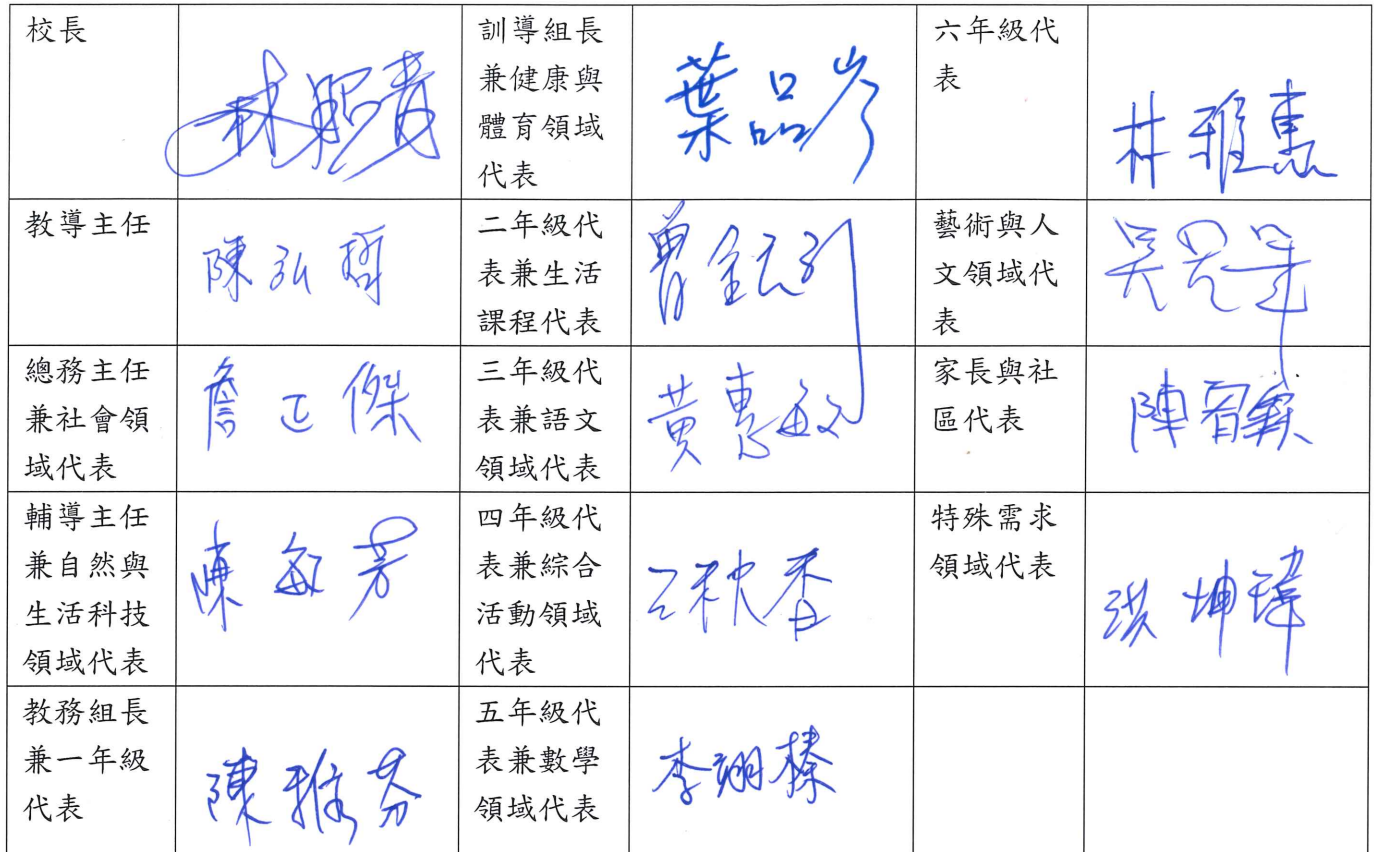 校長
林昭青
訓導組長
兼健康與
體育領域
代表
葉品岑
六年級代
表
林雅惠
教導主任
陳弘哲
二年級代
表兼生活
課程代表
藝術與人
文領域代
表
總務主任
兼社會領
域代表
詹正傑
三年級代
表兼語文
領域代表
黃惠敏
家長與社
區代表
輔導主任
兼自然與
生活科技
領域代表
陳敏芳
四年級代
表兼綜合
活動領域
代表
王秋香
特殊需求
領域代表
洪坤瑋
教務組長
兼一年級
代表
陳雅芬
五年級代
表兼數學
領域代表
李翊榛